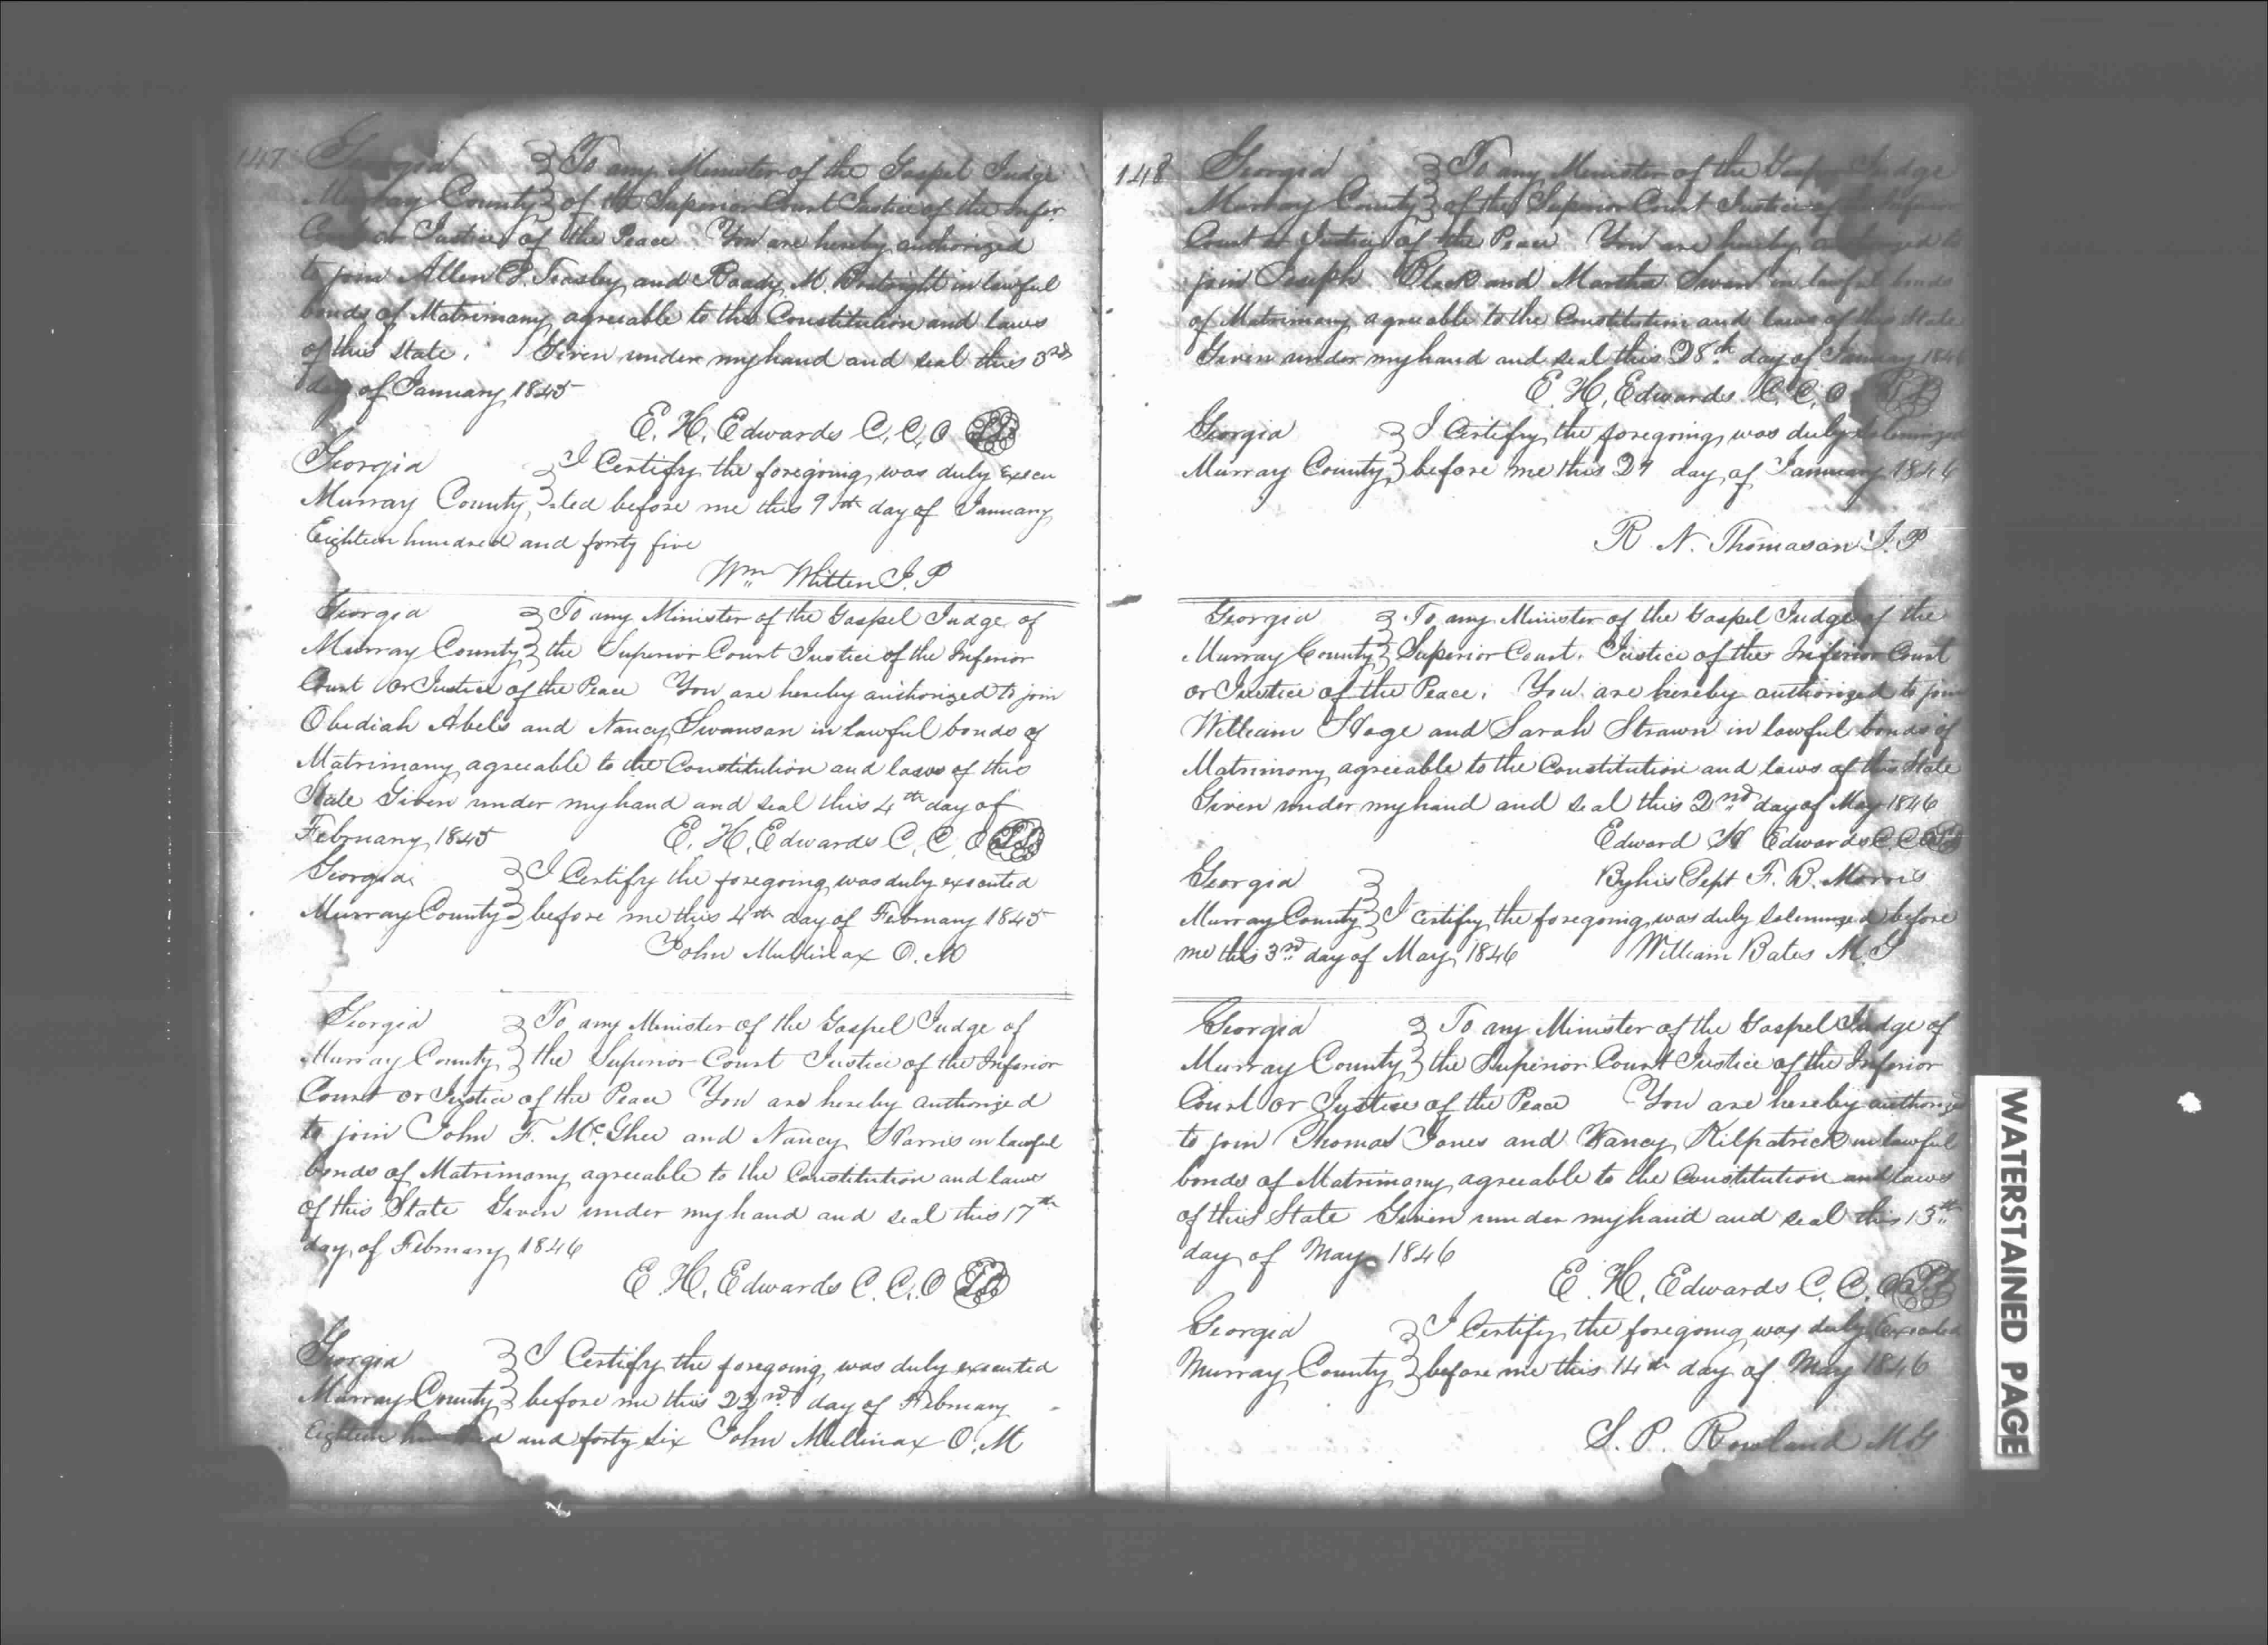 147 Georgia } To any Minister of the Gospel Judge
Murray County } of the Superior Court Justice of the Infer
Court or Justice of the Peace You are hereby authorized
to join Allen Teasley and M. in lawful
bonds of Matrimony agreeable to the Constitution and laws
of this State. Given under my hand and seal this 3rd
day of January 1845
E. H. Edwards C. C. O
Georgia } I Certify the foregoing was duly Execu
Murray County } ted before me this 9th day of January
Eighteen hundred and forty five
Wm Whitten J. P
Georgia } To any Minister of the Gospel Judge of
Murray County } the Superior Court Justice of the Inferior
Court or Justice of the Peace You are hereby authorized to join
Obediah Abels and Nancy Swanson in lawful bonds of
Matrimony agreeable to the Constitution and laws of this
State Given under my hand and seal this 4th day of
February 1845 E. H. Edwards C. C. O
Georgia } I Certify the foregoing was duly executed
Murray County } before me this 4th day of February 1845
John Mullinax O. M
Georgia } To any Minister of the Gospel Judge of
Murray County } the Superior Court Justice of the Inferior
Court or Justice of the Peace You are hereby authorized
to join John F. McGhee and Nancy Harris in lawful
bonds of Matrimony agreeable to the Constitution and laws
of this State Given under my hand and seal this 17th
day of February 1846
E H. Edwards C. C. O
Georgia } I Certify the foregoing was duly executed
Murray County } before me this 23rd day of February
Eighteen hundred and forty six John Mullinax O. M
148 Georgia } To any Minister of the Gospel Judge
Murray County } of the Superior Court Justice of the Inferior
Court or Justice of the Peace You are hereby authorized to
join Joseph Black and Martha Swan in lawful bonds
of Matrimony agreeable to the Constitution and laws of this State
Given under my hand and seal this 28th day of January 1846
E. H. Edwards C. C. O
Georgia } I Certify the foregoing was duly solemnized
Murray County } before me this 29 day of January 1846
R N. Thomason J. P
Georgia } To any Minister of the Gospel Judge of the
Murray County } Superior Court. Justice of the Inferior Court
or Justice of the Peace. You are hereby authorized to join
William Hoge and Sarah Strawn in lawful bonds of
Matrimony agreeable to the Constitution and laws of this State
Given under my hand and seal this 2nd day of May 1846
Edward H Edwards C. C. O
Georgia } By his Dept F. B. Morris
Murray County } I Certify the foregoing was duly solemnized before
me this 3rd day of May 1846 William Bates M. G
Georgia } To any Minister of the Gospel Judge of
Murray County } the Superior Court Justice of the Inferior
Court or Justice of the Peace You are hereby authorized
to join Thomas Jones and Nancy Kilpatrick in lawful
bonds of Matrimony agreeable to the Constitution and laws
of this State Given under my hand and seal this 13th
day of May 1846
E. H. Edwards C. C. O
Georgia } I Certify the foregoing was duly Executed
Murray County } before me this 14th day of May 1846
S. P. Rowland M G
WATERSTAINED PAGE